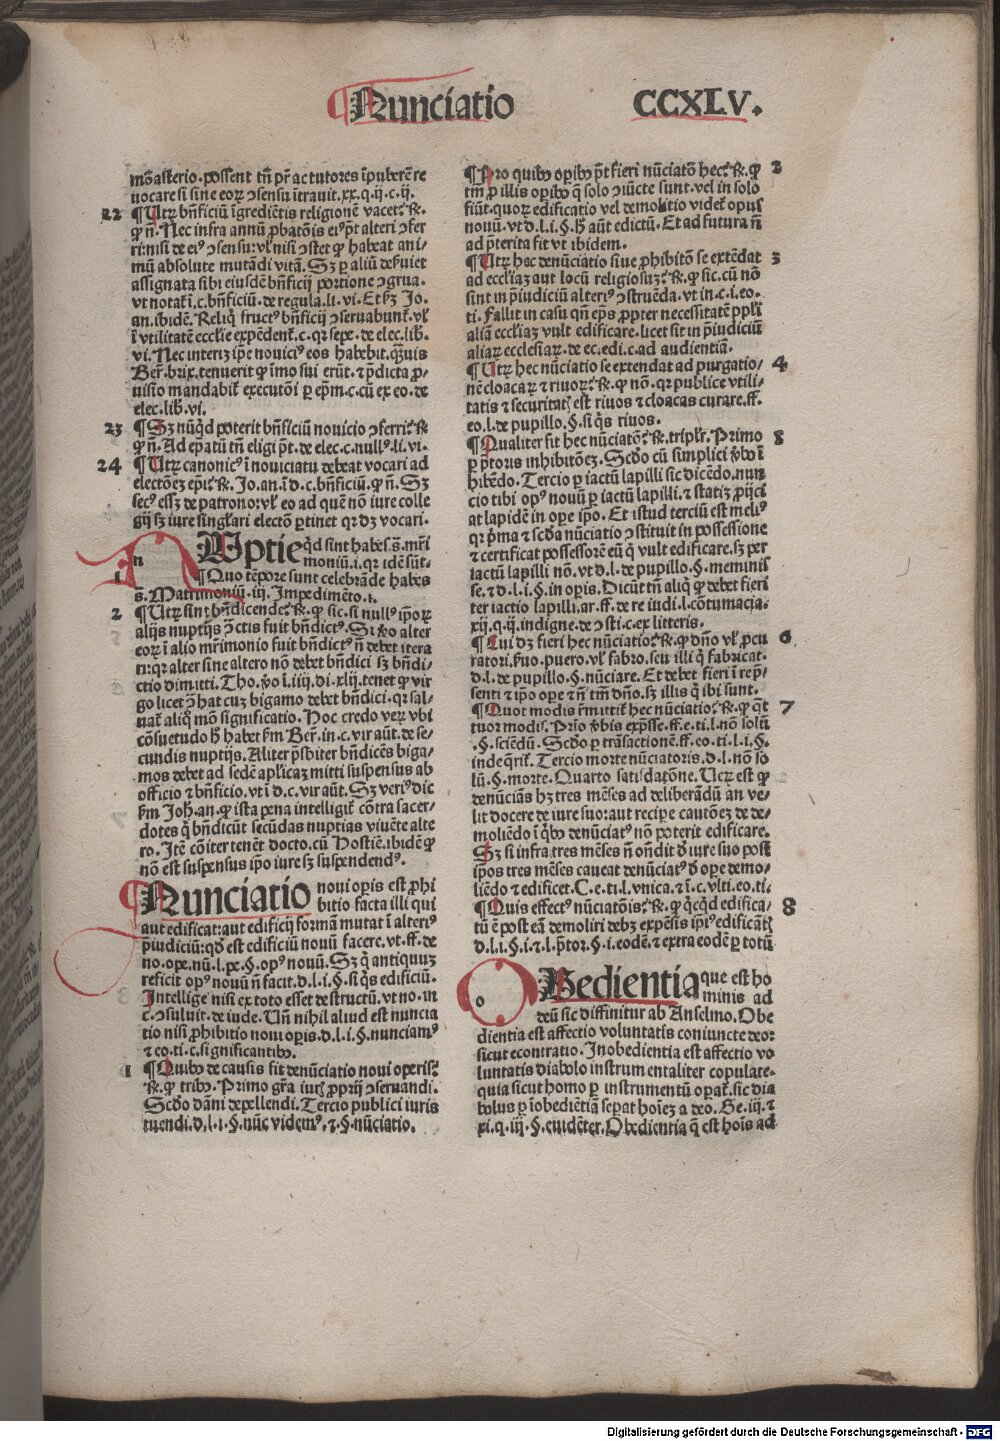 Nunciatio CCXLV.
mōasterio. possent tn̄ pr̄ ac tutores īpuberē re
uocare si sine eorꝝ ↄsensu ītrauit. xx. q. ij. c. ij.
22 ¶ Utrꝫ bn̄ficiū īgrediētis religionē vacet? R.
ꝙ n̄. Nec infra annū ꝓbatōis eiꝰ pt̄ alteri ↄfer
ri: nisi de eiꝰ ↄsensu: vl̓ nisi ↄstet ꝙ habeat ani-
mū absolute mutādi vitā. Sꝫ ꝑ aliū deẜuiet
assignata sibi eiusdē bn̄ficij portione ↄgrua.
vt notat̉ ī. c. bn̄ficiū. de regula. li. vi. Et ẜm Jo.
an. ibidē. Reliq̄ fructꝰ bn̄ficij ↄseruabunt̉. vl̓
ī vtilitatē eccl̓ie expēdent̉. c. qr sepe. de elec. lib.
vi. Nec interiꝫ ip̄e nouiciꝰ eos habebit. q̄ꝫuis
Ber. brix. tenuerit ꝙ imo sui erūt. ⁊ p̄dicta ꝓ-
uisio mandabit̉ executōi ꝑ ep̄m. c. cū ex eo. de
elec. lib. vi.
23 ¶ Sꝫ nūq̄d poterit bn̄ficiū nouicio ↄferri? R.
ꝙ n̄. Ad epatū tn̄ eligi pt̄. de elec. c. nullꝰ. li. vi.
24 ¶ Utrꝫ canonicꝰ ī nouiciatu debeat vocari ad
electōeꝫ epi? R. Jo. an. ī d. c. bn̄ficiū. ꝙ n̄. Sꝫ
secꝰ esseꝫ de patrono: vl̓ eo ad quē nō iure colle
gij sꝫ iure singl̓ari electō ꝑtinet qr dꝫ vocari.
n Uptie qd sint habes. s̄. mr̄i
moniū. i. qr idē sūt.
1 ¶ Quo tēpore sunt celebrāde habes
s̄. Matrimoniū. iij. Impedimēto. i.
2 ¶ Utrꝫ sint bn̄dicende? R. ꝙ sic. si nullꝰ ip̄orꝝ
alijs nuptijs ↄ̄ctis fuit bn̄dictꝰ. Si ꝟo alter
eorꝝ ī alio mr̄imonio fuit bn̄dictꝰ n̄ debet itera
ri: qr alter sine altero nō debet bn̄dici sꝫ bn̄di-
ctio dimitti. Tho. ꝟo ī. iiij. di. xlij. tenet ꝙ vir
go licet ↄ̄hat cuꝫ bigamo debet bn̄dici. qr sal-
uat̉ aliq̄ mō significatio. Hoc credo verꝫ vbi
cōsuetudo h̄ habet ẜm Ber. in. c. vir aūt. de se-
cundis nuptijs. Aliter p̄sbiter bn̄dicēs biga-
mos debet ad sedē apl̓icaꝫ mitti suspensus ab
officio ⁊ bn̄ficio. vt ī d. c. vir aūt. Sꝫ veriꝰ dic
ẜm Joh. an. ꝙ ista pena intelligit̉ cōtra sacer-
dotes q̄ bn̄dicūt secūdas nuptias viuēte alte
ro. Itē cōiter tenēt docto. cū Hostiē. ibidē ꝙ
nō est suspensus ip̄o iure sꝫ suspendendꝰ.
Nunciatio noui oꝑis est ꝓhi
bitio facta illi qui
aut edificat: aut edificij formā mutat ī alteriꝰ
p̄iudiciū: qd̄ est edificiū nouū facere. vt. ff. de
no. ope. nū. l. pe. §. opꝰ nouū. Sꝫ q̄ antiquuꝫ
reficit opꝰ nouū n̄ facit. d. l. i. §. si q̄s edificiū.
Intellige nisi ex toto esset destructū. vt no. in
c. ↄsuluit. de iude. Un̄ nihil aliud est nuncia
tio nisi ꝓhibitio noui oꝑis. d. l. i. §. nunciamꝰ
⁊ eo. ti. c. significantibꝰ.
1 ¶ Quibꝰ de causis fit denūciatio noui operis?
R. ꝙ tribꝰ. Primo gr̄a iurꝭ ꝓprij ↄseruandi.
Scd̓o dāni depellendi. Tercio publici iuris
tuendi. d. l. i. §. nūc videmꝰ. ⁊. §. nūciatio.
¶ Pro quibꝰ oꝑibꝰ pt̄ fieri nūciatō hec? R. ꝙ 2
tm̄ ꝑ illis oꝑibꝰ q̄ solo ↄiūcte sunt. vel in solo
fiūt. quoꝝ edificatio vel demolitio videt̉ opus
nouū. vt d. l. i. §. h̄ aūt edictū. Et ad futura n̄
ad p̄terita fit vt ibidem.
¶ Utrꝫ hec denūciatio siue ꝓhibitō se extēdat 3
ad eccl̓iaꝫ aut locū religiosuꝫ? R. ꝙ sic. cū nō
sint in p̄iudiciū alteriꝰ ↄstruēda. vt in. c. i. eo.
ti. Fallit in casu qn̄ ep̄s ꝓpter necessitatē ppl̓i
aliā eccl̓iaꝫ vult edificare. licet sit in p̄iudiciū
aliaꝝ ecclesiaꝝ. de ec. edi. c. ad audientiā.
¶ Utrꝫ hec nūciatio se extendat ad purgatio- 4
nē cloacaꝝ ⁊ riuoꝝ? R. ꝙ nō. qr publice vtili-
tatis ⁊ securitatꝭ est riuos ⁊ cloacas curare. ff.
eo. l. de pupillo. §. si q̄s riuos.
¶ Qualiter fit hec nūciatō? R. tripl̓r. Primo 5
ꝑ p̄toris inhibitōeꝫ. Scd̓o cū simplici ꝟbo ī
hibēdo. Tercio ꝑ iactū lapilli sic dicēdo. nun
cio tibi opꝰ nouū ꝑ iactū lapilli. ⁊ statiꝫ ꝓijci
at lapidē in ope ip̄o. Et istud terciū est meliꝰ
qr p̄ma ⁊ scd̓a nūciatio ↄstituit in possessione
⁊ certificat possessorē eū q̄ vult edificare. sꝫ per
iactū lapilli nō. vt d. l. de pupillo. §. meminis
se. ⁊ d. l. i. §. in opis. Dicūt tn̄ aliq̄ ꝙ debet fieri
ter iactio lapilli. ar. ff. de re iudi. l. cōtumacia.
xij. q. ij. indigne. de ↄsti. c. ex litteris.
¶ Cui dꝫ fieri hec nūciatio? R. ꝙ dn̄o vl̓ ꝓcu 6
ratori. ẜuo. puero. vl̓ fabro. seu illi q̄ fabricat.
d. l. de pupillo. §. nūciare. Et debet fieri ī rep̄-
senti ⁊ ip̄o ope ⁊ n̄ tm̄ dn̄o. sꝫ illis q̄ ibi sunt.
¶ Quot modis r̄mittit̉ hec nūciatio? R. ꝙ q̄t 7
tuor modis. Prio ꝟbis exp̄sse. ff. e. ti. l. nō solū
.§. sciēdū. Scd̓o ꝑ trāsactionē. ff. eo. ti. l. i. §.
inde q̄rit̉. Tercio morte nūciatoris. d. l. nō so
lū. §. morte. Quarto satisdatōne. Ucrꝫ est ꝙ
denūciās hꝫ tres mēses ad deliberādū an ve-
lit docere de iure suo: aut recipe cautōeꝫ de de-
moliēdo ī q̄bꝰ denūciatꝰ nō poterit edificare.
Sꝫ si infra tres mēses n̄ on̄dit d̓ iure suo post
ip̄os tres mēses caueat denūciatꝰ d̓ ope demo-
liēdo ⁊ edificet. C. e. ti. l. vnica. ⁊ ī. c. vlti. eo. ti.
¶ Quis effectꝰ nūciatōis? R. ꝙ q̄cq̄d edifica- 8
tū ē post eā demoliri debꝫ expēsis ip̄iꝰ edificātꝭ
d. l. i. §. i. ⁊. l. p̄tor. §. i. eodē. ⁊ extra eodē ꝑ totū
o Bedientia que est ho
minis ad
deū sic diffinitur ab Anselmo. Obe
dientia est affectio voluntatis coniuncte deo:
sicut econtratio. Inobedientia est affectio vo
luntatis diabolo instrum entaliter copulate.
quia sicut homo ꝑ instrumentū opat̉. sic dia
bolus ꝑ īobediētiā seꝑat hoīeꝫ a deo. Be. iij. ⁊
xi. q. iij. §. euidēter. Obedientia q̄ est hoīs ad